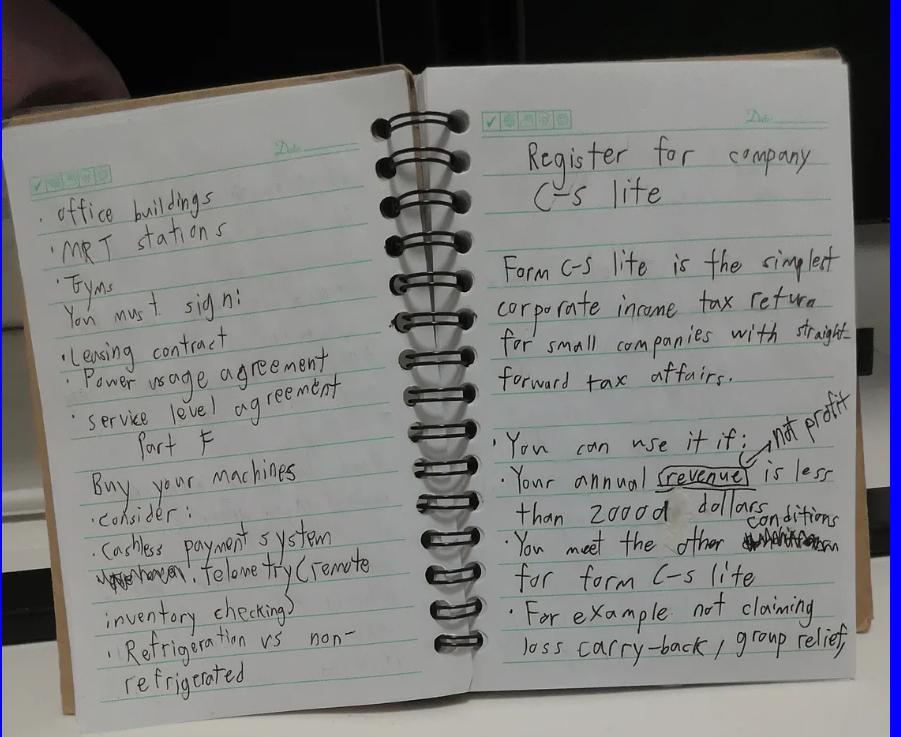 Date
· office buildings
· MRT stations
· Gyms
You must sign:
· Leasing contract
· Power usage agreement
· service level agreement
Part F
Buy your machines
· consider:
· Cashless payment system
· Telemetry (remote
inventory checking)
· Refrigeration vs non-
refrigerated
Date
Register for company
C-S lite
Form C-S lite is the simplest
corporate income tax return
for small companies with straight-
forward tax affairs.
· You can use it if:
not profit
· Your annual revenue is less
than 20000 dollars
· You meet the other conditions
for form C-S lite
· For example not claiming
loss carry-back, group relief,